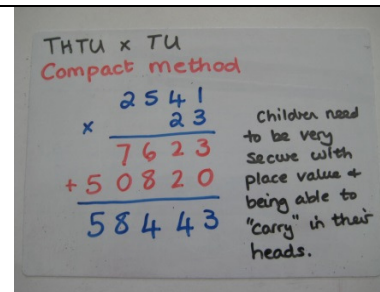 THTU x TU
Compact method
2541
x 23
7623
+ 50820
58443
Children need
to be very
secure with
place value +
being able to
"carry" in their
heads.